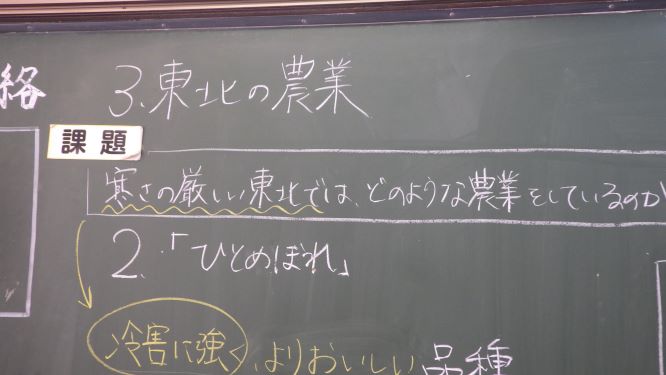 絡
3.東北の農業
課題
寒さの厳しい東北では、どのような農業をしているのか
2.「ひとめぼれ」
冷害に強く、よりおいしい品種